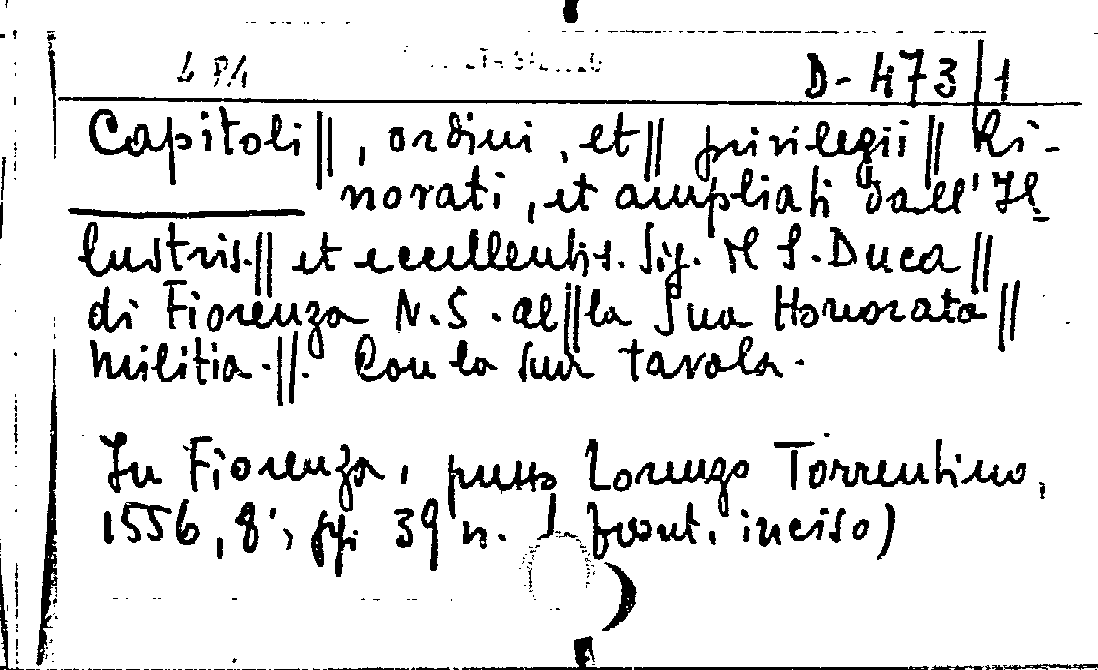 D-473/1
Capitoli||, ordini, et|| privilegii|| Ri-
novati, et ampliati dall' Il
lustris.|| et eccellentis. Sig. Il S. Duca||
di Fiorenza N.S. al||la Sua Honorata||
Militia.||. Con la sua tavola.
In Fiorenza, presso Lorenzo Torrentino,
1556, 8°, pp. 39 n. (front. inciso)